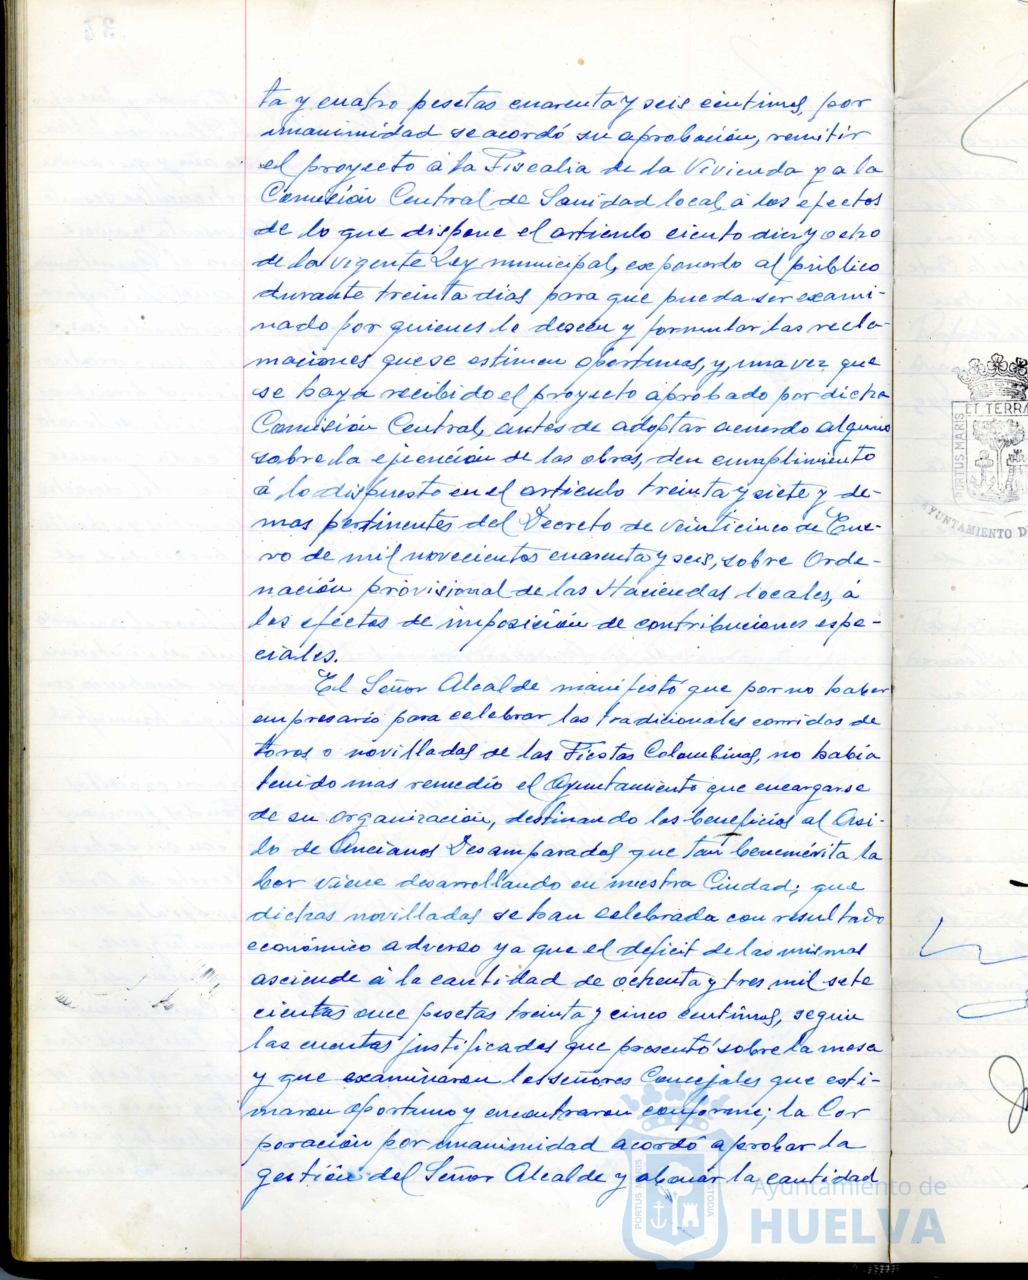 ta y cuatro pesetas cuarenta y seis céntimos, por
unanimidad se acordó su aprobación, remitir
el proyecto á la Fiscalia de la Vivienda y a la
Comisión Central de Sanidad local, á los efectos
de lo que dispone el artículo ciento diez y ocho
de la vigente Ley municipal, exponerlo al público
durante treinta dias para que pueda ser exami-
nado por quienes lo deseen y formular las recla-
maciones que se estimen oportunas, y, una vez que
se haya recibido el proyecto aprobado por dicha
Comisión Central, antes de adoptar acuerdo alguno
sobre la ejecución de las obras, den cumplimiento
á lo dispuesto en el artículo treinta y siete y de-
mas pertinentes del Decreto de veinticinco de Ene-
ro de mil novecientos cuarenta y seis, sobre Orde-
nación provisional de las Haciendas locales, á
los efectos de imposición de contribuciones espe-
ciales.
El Señor Alcalde manifestó que por no haber
empresario para celebrar las tradicionales corridas de
toros o novilladas de las Fiestas Colombinas, no había
tenido mas remedio el Ayuntamiento que encargarse
de su organización, destinando los beneficios al Asi-
lo de Ancianos Desamparados que tan benemérita la
bor viene desarrollando en nuestra Ciudad; que
dichas novilladas se han celebrado con resultado
económico adverso ya que el deficit de las mismas
asciende á la cantidad de ochenta y tres mil sete
cientas once pesetas treinta y cinco centimos, segun
las cuentas justificadas que presentó sobre la mesa
y que examinaron los señores Concejales que esti-
maron oportuno y encontraron conforme; la Cor
poración por unanimidad acordó aprobar la
gestión del Señor Alcalde y abonar la cantidad
ET TERRA
PORTUS MARIS
AYUNTAMIENTO D
PORTUS MARIS
CUSTODIA
Ayuntamiento de
HUELVA